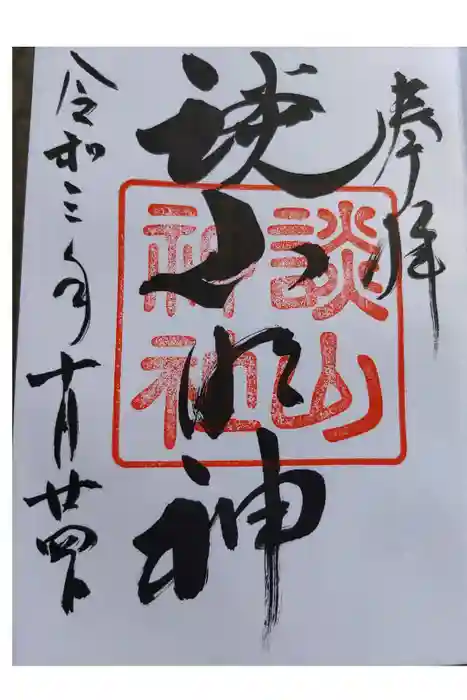 奉拝
談山明神
談山
神社
令和三年十月廿四日